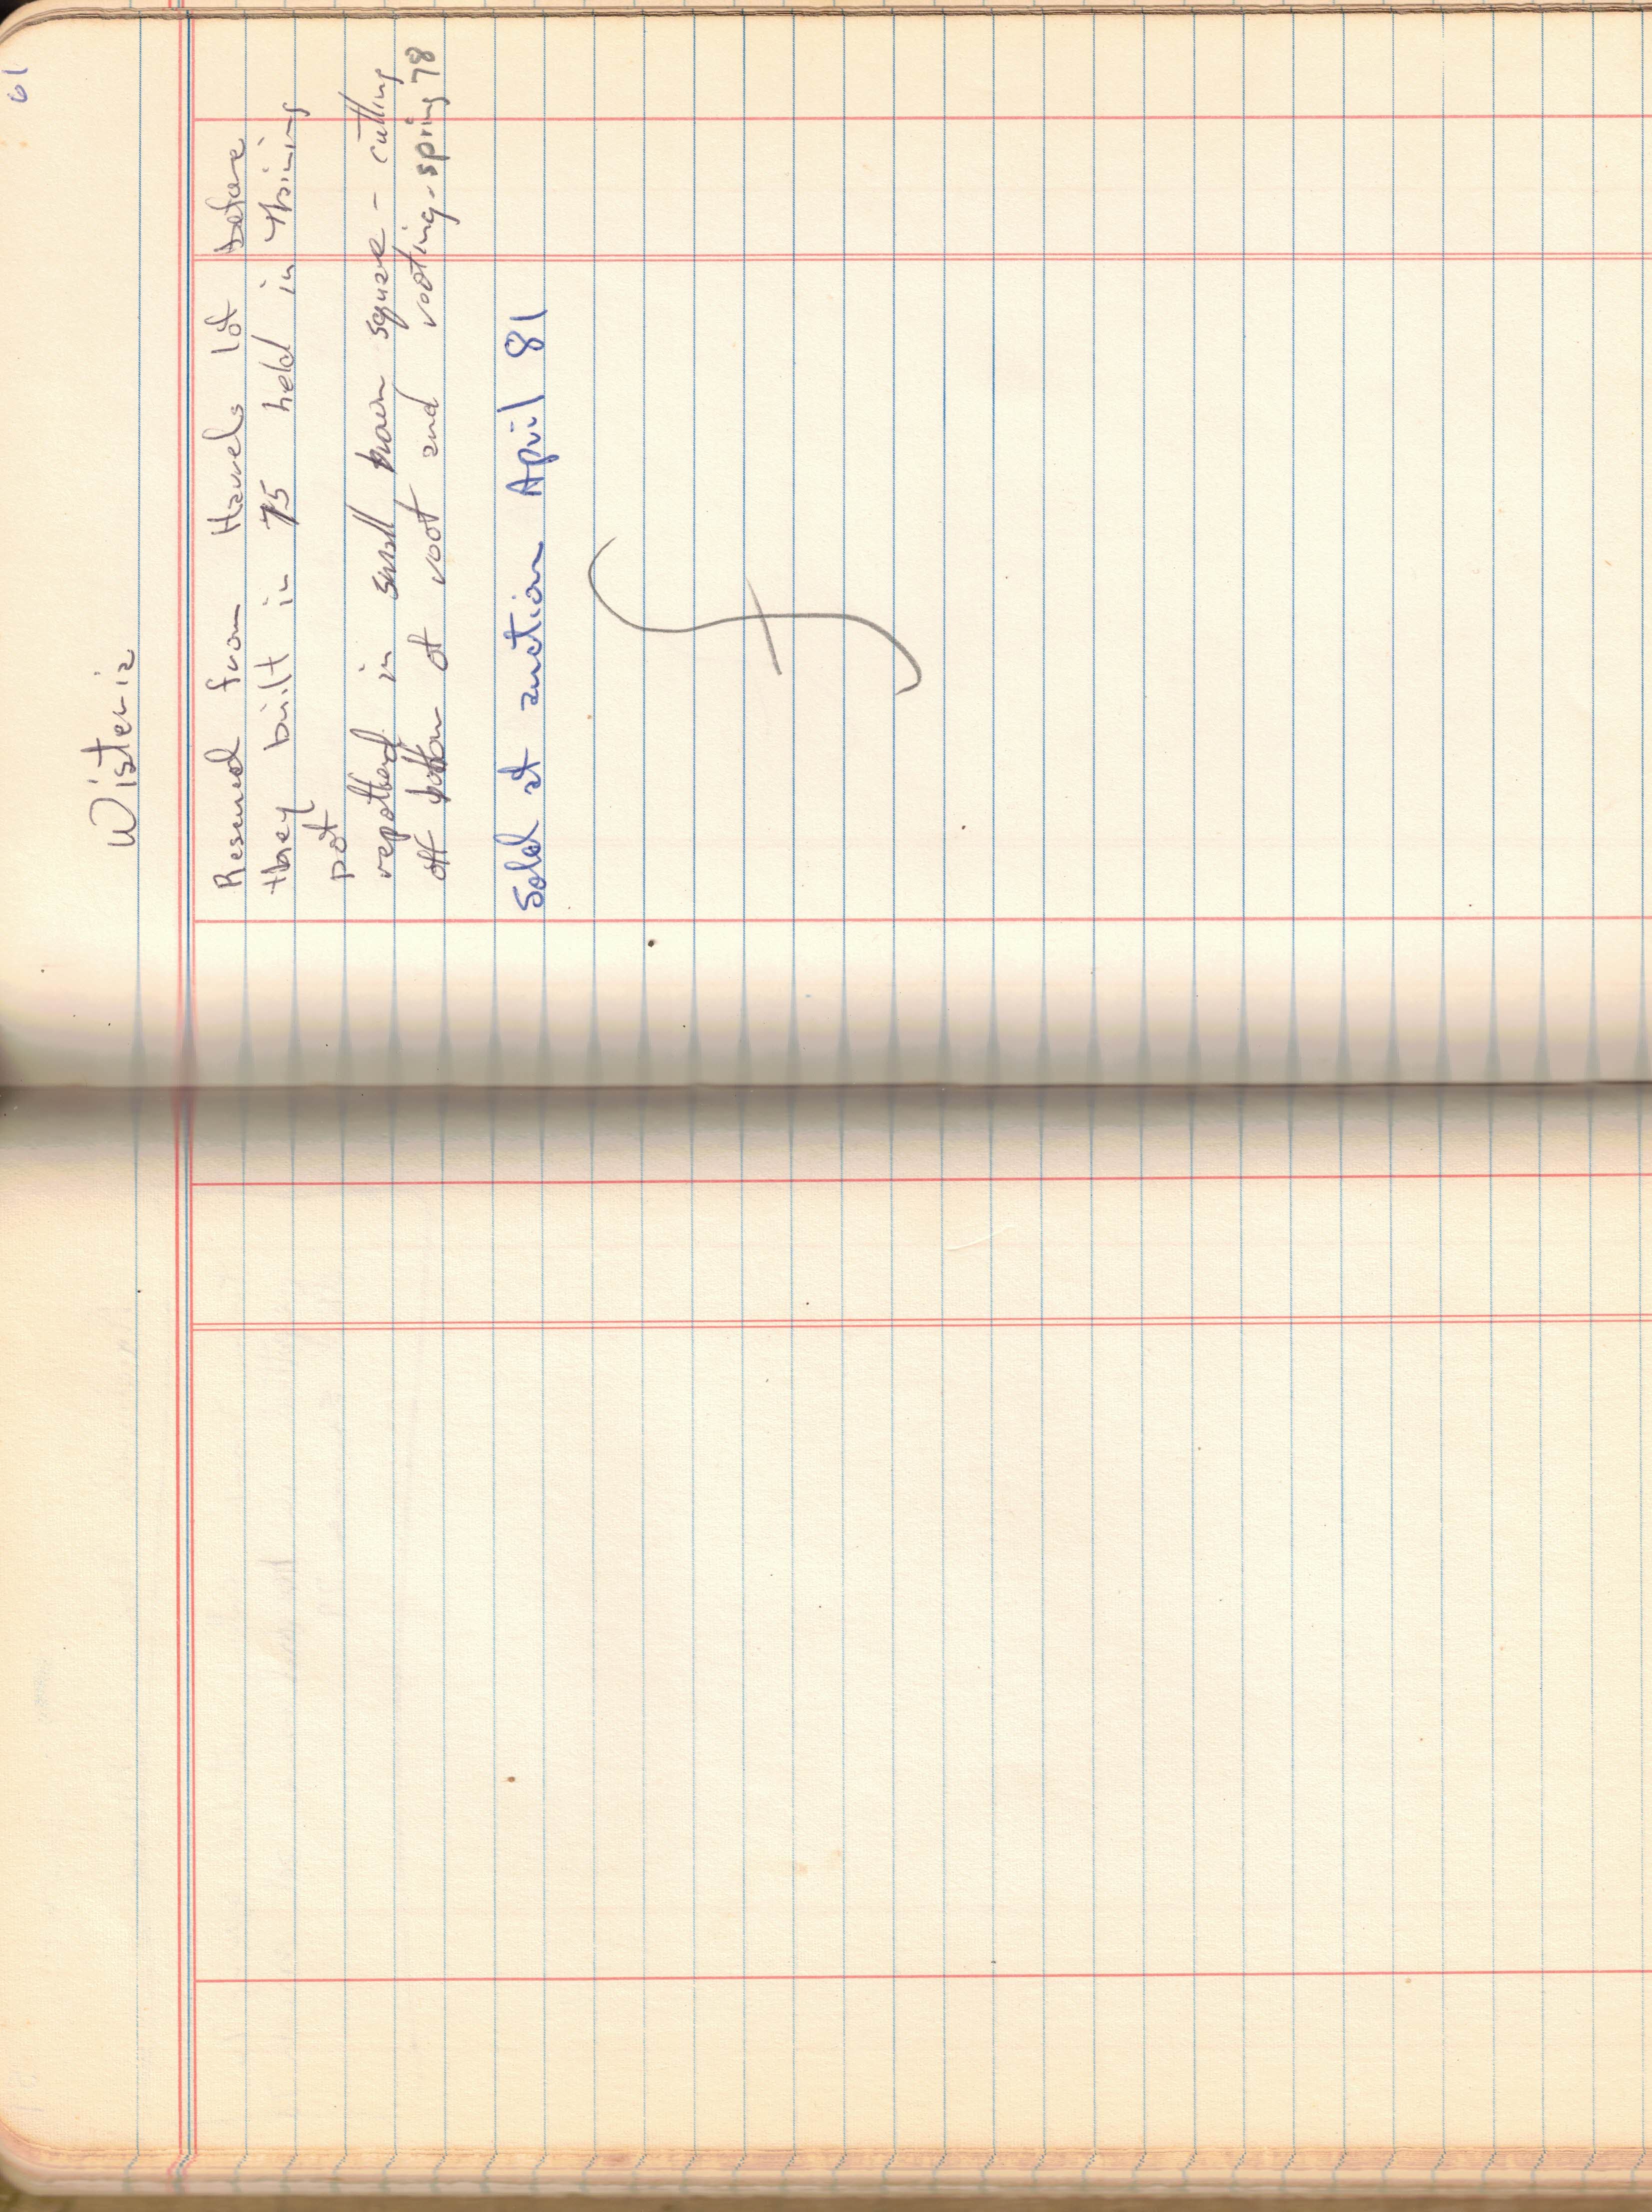 61
Wisteria
Rescued from Harrels lot before
they built in 75 held in training
pot
repotted in small brown square - cutting
off bottom of root and rooting - spring 78
Sold at auction April 81
f